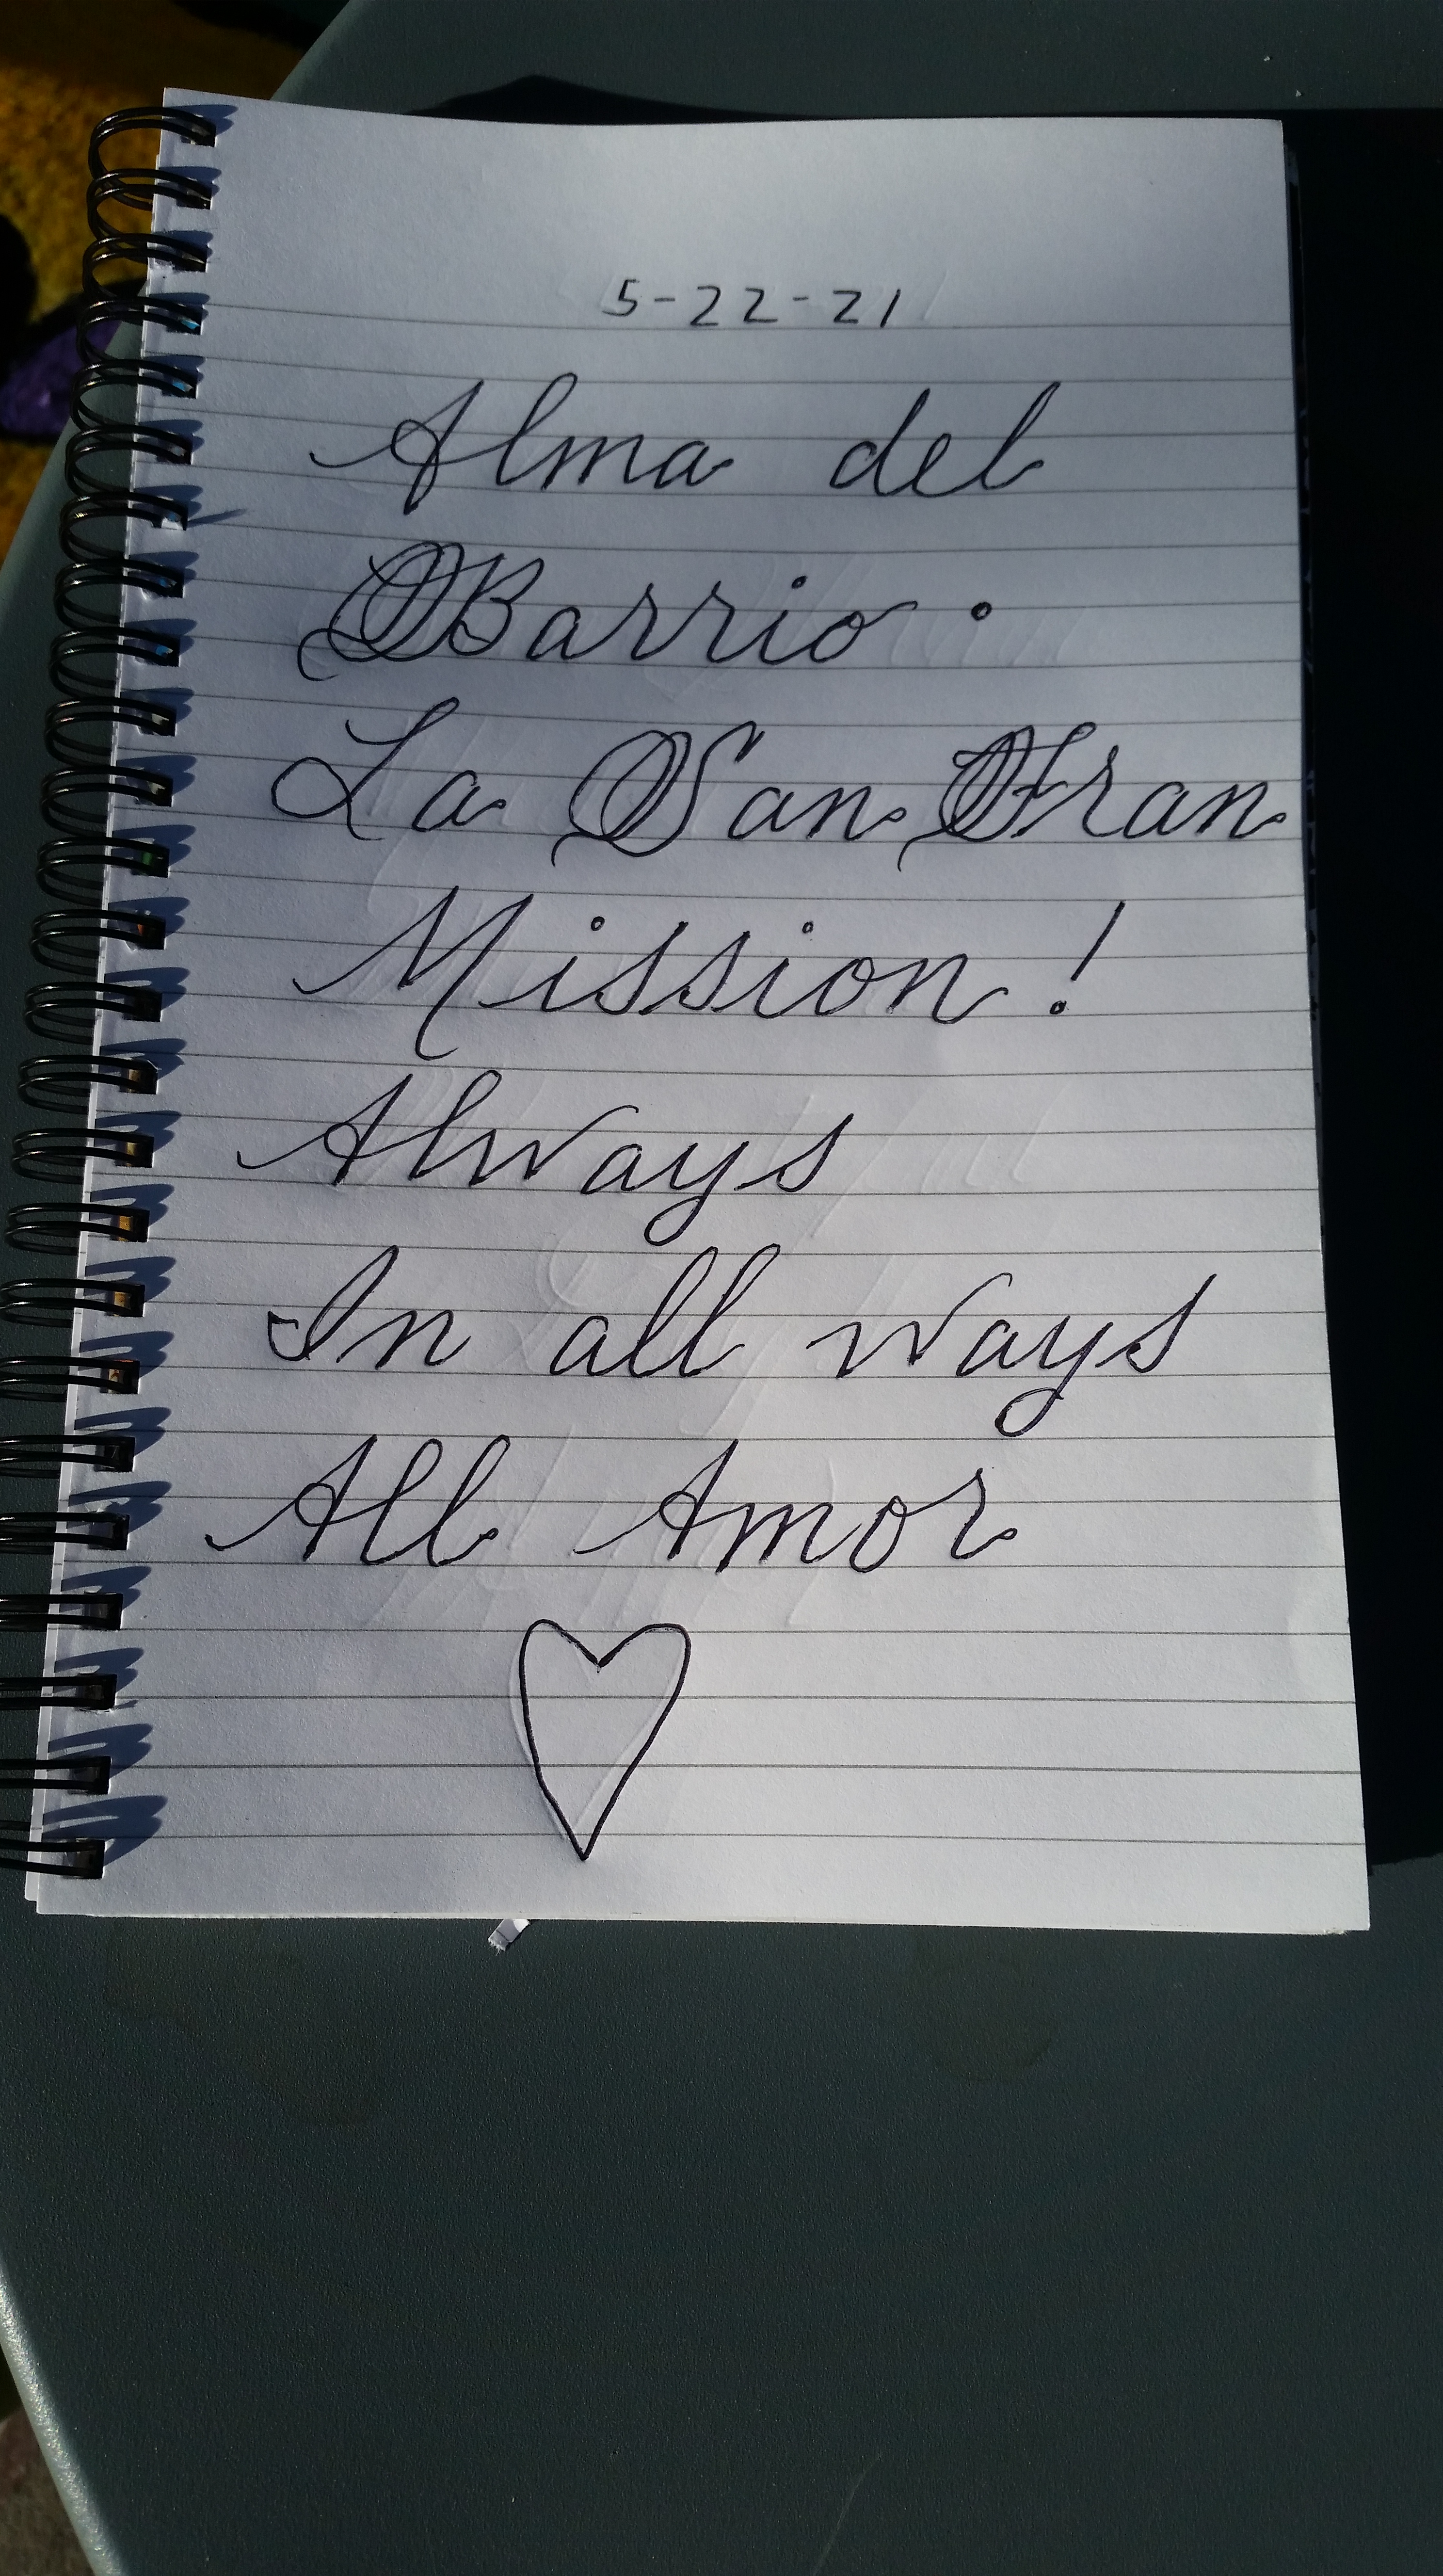 5-22-21
Alma del
Barrio.
La San Fran
Mission!
Always
In all ways
All Amor